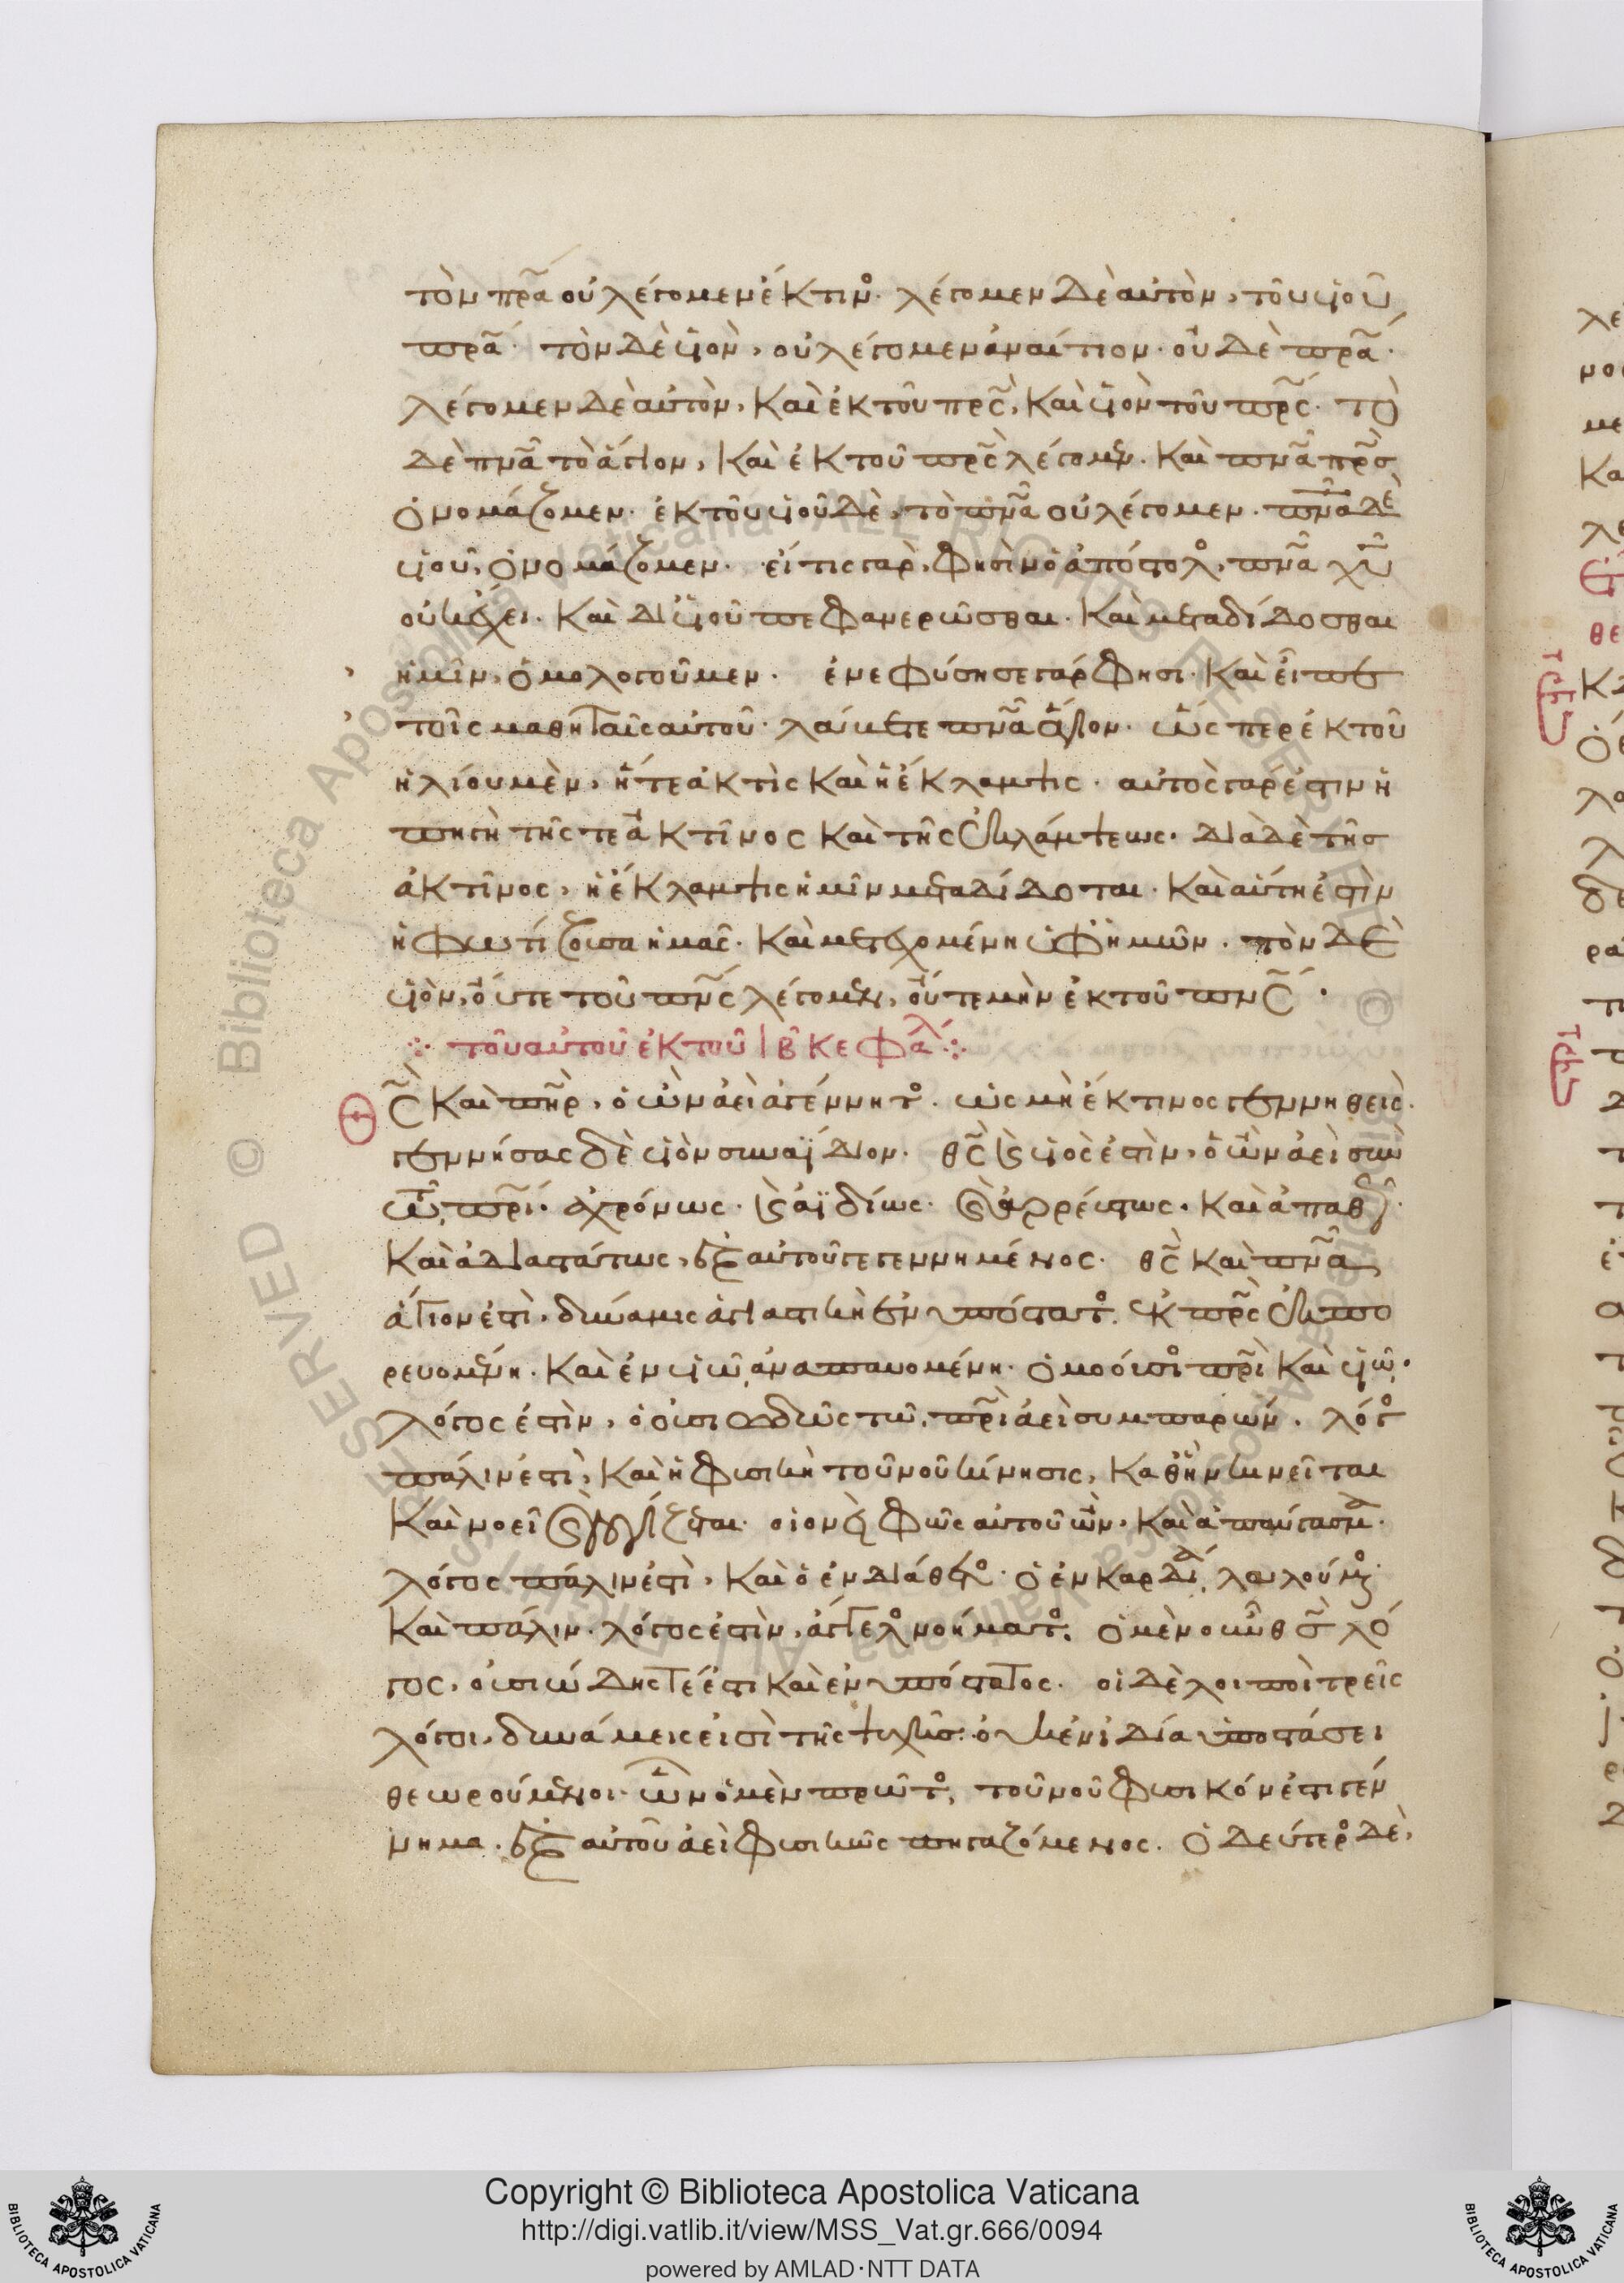 τὸν πρ̅α οὐ λέγομεν ἔκ τινος· λέγομεν δὲ αὐτὸν, τοῦ υἱοῦ
πρ̅α· τὸν δὲ υἱὸν, οὐ λέγομεν ἀναίτιον· οὐδὲ πρ̅α·
λέγομεν δὲ αὐτὸν, καὶ ἐκ τοῦ πρ̅ς, καὶ υἱὸν τοῦ πρ̅ς· τὸ
δὲ πν̅α τὸ ἅγιον, καὶ ἐκ τοῦ πρ̅ς λέγομεν· καὶ πν̅α πρ̅σ
ὀνομάζομεν· ἐκ τοῦ υἱοῦ δὲ, τὸ πν̅α οὐ λέγομεν· πν̅α δὲ
υἱοῦ, ὀνομάζομεν· εἴ τις γὰρ, φησὶν ὁ ἀπόστολος, πν̅α χ̅υ
οὐκ ἔχει· καὶ δι' υἱοῦ πεφανερῶσθαι· καὶ μεταδίδοσθαι
ἡμῖν, ὁμολογοῦμεν· ἐνεφύσησε γάρ φησι· καὶ εἶπε
τοῖς μαθηταῖς αὐτοῦ· λάβετε πν̅α ἅγιον· ὥσπερ ἐκ τοῦ
ἡλίου μὲν, ἥ τε ἀκτὶς καὶ ἡ ἔκλαμψις· αὐτὸς γάρ ἐστιν ἡ
πηγὴ τῆς τε ἀκτῖνος καὶ τῆς ἐκλάμψεως· διὰ δὲ τῆσ
ἀκτῖνος, ἡ ἔκλαμψις ἡμῖν μεταδίδοται· καὶ αὐτή ἐστὶν
ἡ φωτίζουσα ἡμᾶς· καὶ μετεχομένη ὑφ' ἡμῶν· τὸν δὲ
υἱὸν, οὔτε τοῦ πν̅ς λέγομεν, οὔτε μὴν ἐκ τοῦ πν̅ς·
τοῦ αὐτοῦ ἐκ τοῦ ιβ κεφαλ
Θ̅ς καὶ πη̅ρ, ὁ ὢν ἀεὶ ἀγέννητος· ὡς μὴ ἔκ τινος γεννηθείς·
γεννήσας δὲ υἱὸν συναΐδιον· θ̅ς καὶ υἱός ἐστὶν, ὁ ὢν ἀεὶ σὺν
τῶ πρ̅ι· ἀχρόνως· καὶ ἀϊδίως· καὶ ἀρρεύστως· καὶ ἀπαθῶς·
καὶ ἀδιαστάτως, ἐξ αὐτοῦ γεγεννημένος· θ̅ς καὶ πν̅α
ἅγιον ἐστὶ, δύναμις ἁγιαστικὴ ἐνυπόστατος· ἐκ πρ̅ς ἐκπο
ρευομένη· καὶ ἐν υἱῶ ἀναπαυομένη· ὁμοούσιος πρ̅ι καὶ υἱῶ·
λόγος ἐστὶν, ὁ οὐσιωδῶς τῶ πρ̅ι ἀεὶ συμπαρών· λόγος
πάλιν ἐστὶ, καὶ ἡ φυσικὴ τοῦ νοῦ κίνησις, καθ' ἣν κινεῖται
καὶ νοεῖ καὶ λογίζεται· οἱονεὶ φῶς αὐτοῦ ὢν· καὶ ἀπαύγασμα·
λόγος πάλιν ἐστὶ, καὶ ὁ ἐνδιάθετος· ὁ ἐν καρδία λαλούμενος·
καὶ πάλιν· λόγος ἐστὶν, ἄγγελος νοήματος· ὁ μὲν οὖν θ̅σ λό
γος, οὐσιώδης τέ ἐστι καὶ ἐνυπόστατος· οἱ δὲ λοιποὶ τρεῖς
λόγοι, δυνάμεις εἰσὶ τῆς ψυχῆς· οὐκ ἐν ἰδία ὑποστάσει
θεωρούμενοι· ὧν ὁ μὲν πρῶτος, τοῦ νοῦ φυσικόν ἐστι γέν
νημα· ἐξ αὐτοῦ ἀεὶ φυσικῶς πηγαζόμενος· ὁ δεύτερος δὲ,
Copyright © Biblioteca Apostolica Vaticana
http://digi.vatlib.it/view/MSS_Vat.gr.666/0094
powered by AMLAD·NTT DATA